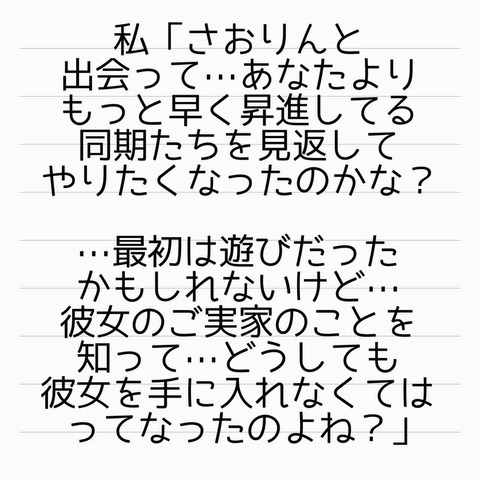 私「さおりんと
出会って…あなたより
もっと早く昇進してる
同期たちを見返して
やりたくなったのかな？
…最初は遊びだった
かもしれないけど…
彼女のご実家のことを
知って…どうしても
彼女を手に入れなくては
ってなったのよね？」